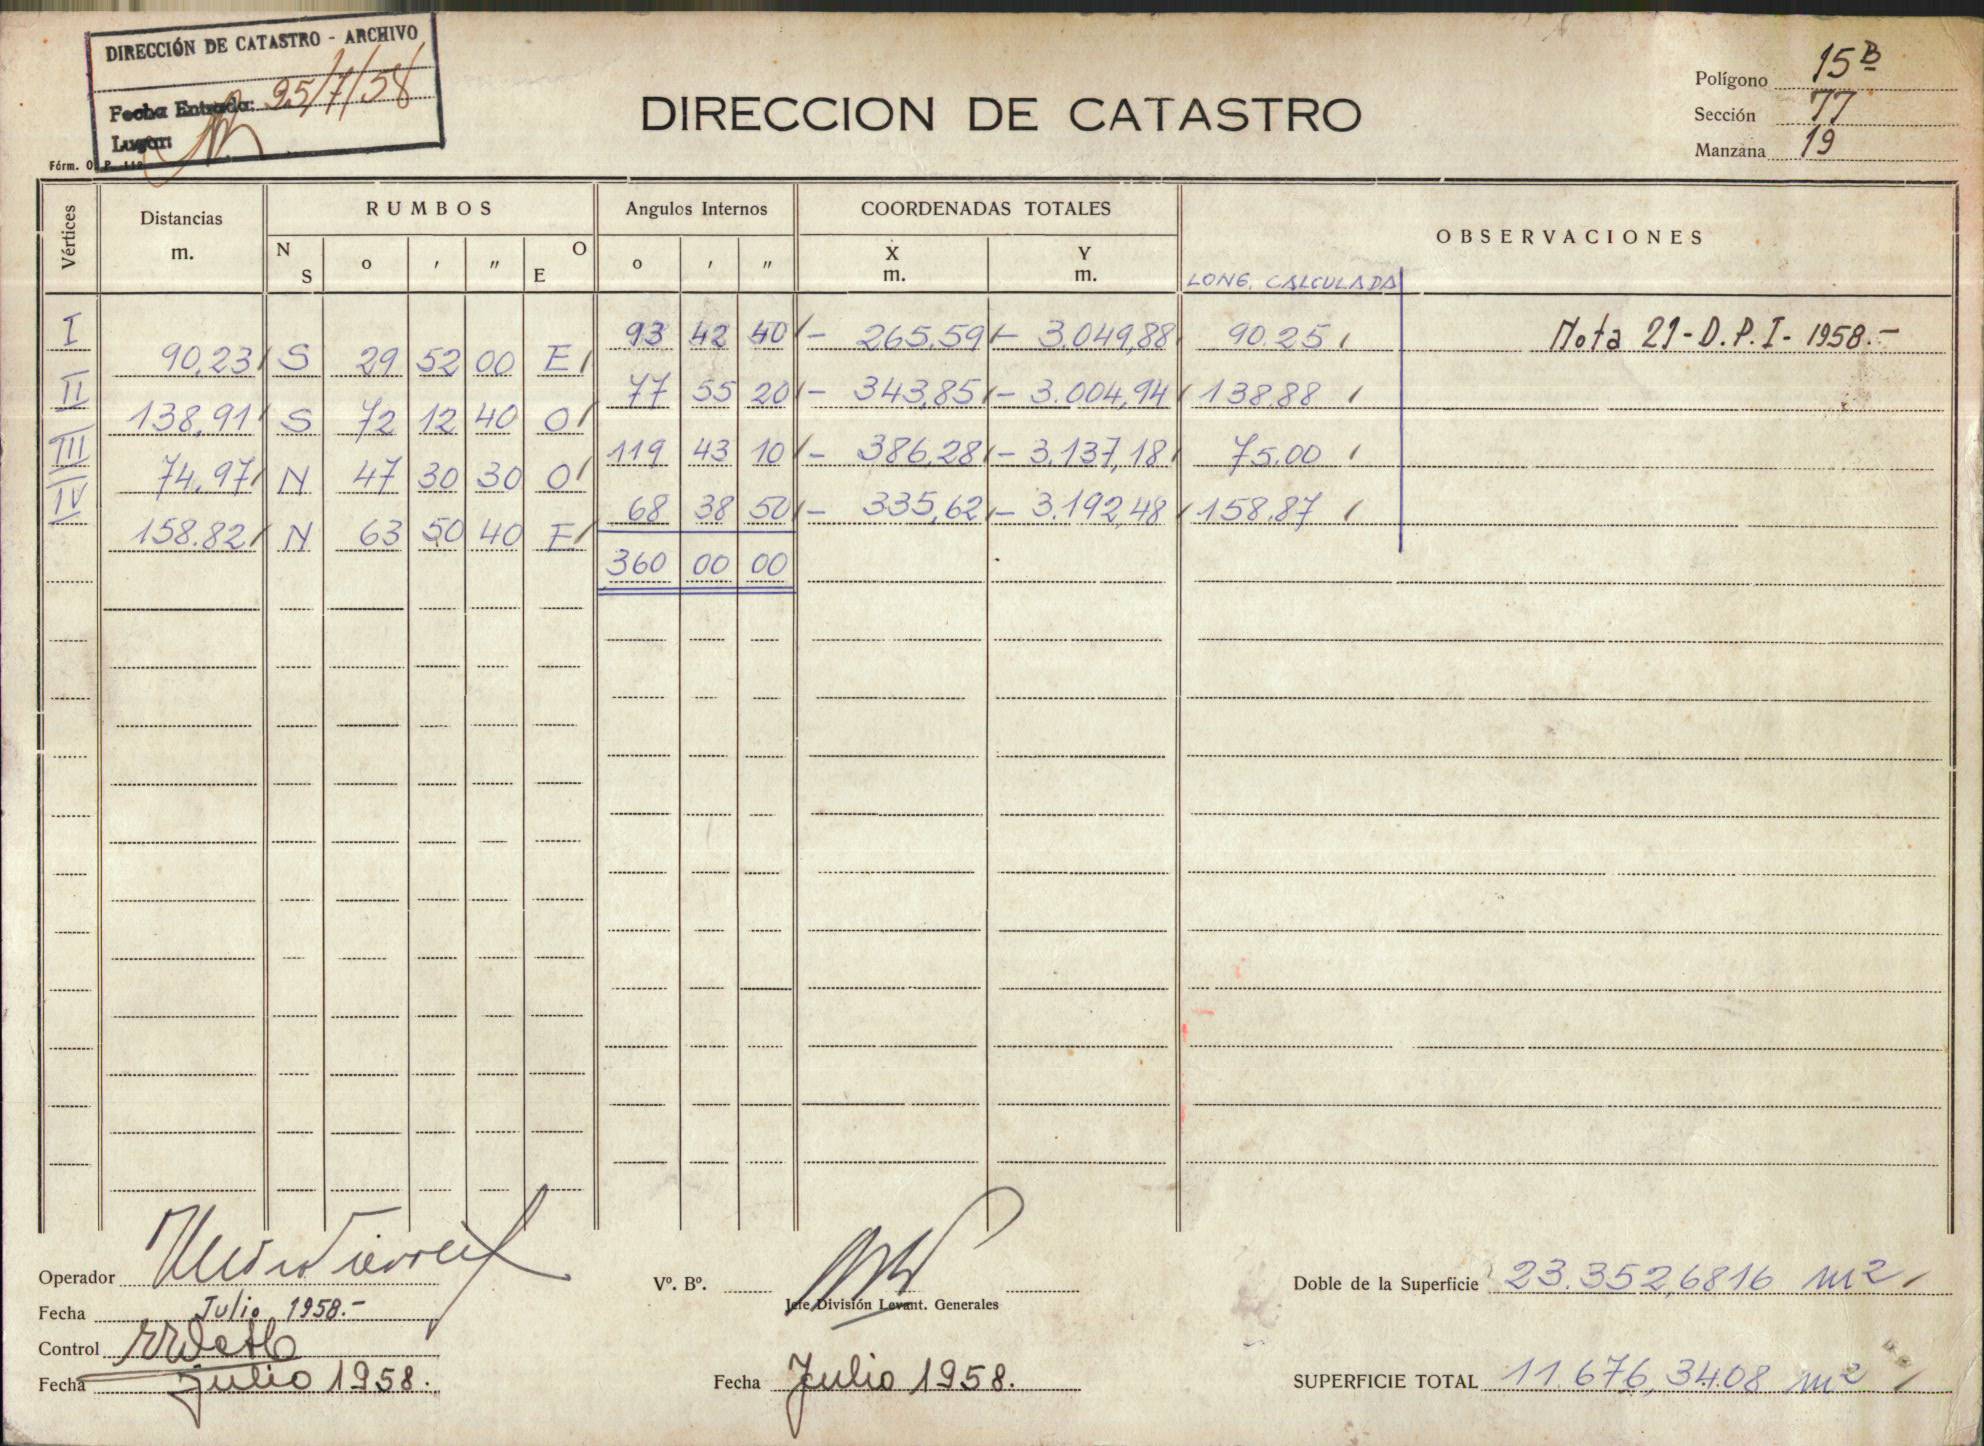 DIRECCIÓN DE CATASTRO - ARCHIVO
Fecha Entrada: 25/7/58
Lugar:
Fórm. O. P. 112
DIRECCION DE CATASTRO
Polígono 15B
Sección 77
Manzana 19
Vértices Distancias m. RUMBOS Angulos Internos COORDENADAS TOTALES OBSERVACIONES
N S o ' " O E o ' " X m. Y m. LONG. CALCULADA
I 93 42 40 - 265.59 - 3.049,88 90.25 Nota 21-D.P.I-1958.-
90,23 S 29 52 00 E
II 77 55 20 - 343,85 - 3.004,94 138.88
138,91 S 72 12 40 O
III 119 43 10 - 386,28 - 3.137,18 75.00
74,97 N 47 30 30 O
IV 68 38 50 - 335,62 - 3.192,48 158.87
158.82 N 63 50 40 E
360 00 00
Operador
Fecha Julio 1958.-
Control
Fecha Julio 1958.
Vº. Bº.
Jefe División Levant. Generales
Fecha Julio 1958.
Doble de la Superficie 23.352,6816 m2
SUPERFICIE TOTAL 11.676,3408 m2